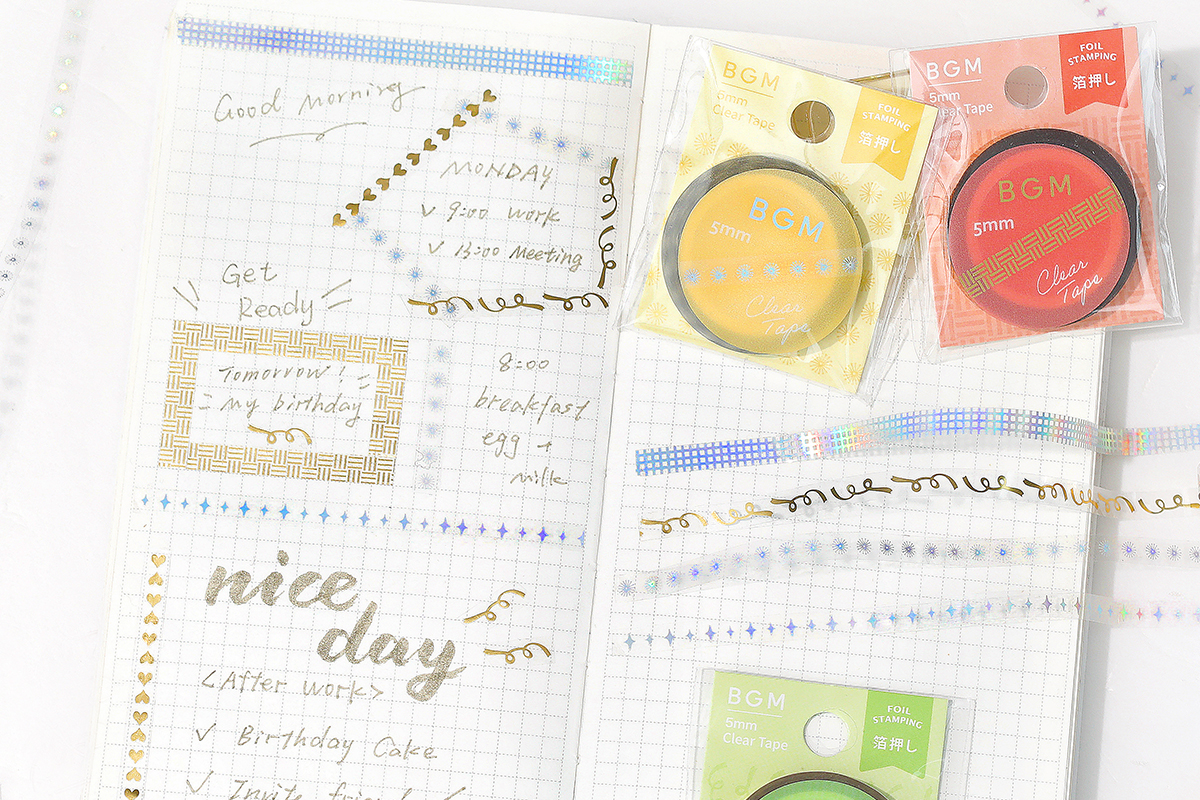 Good morning
MONDAY
✓ 9:00 work
✓ 13:00 Meeting
Get
Ready
Tomorrow!
my birthday
8:00
breakfast
egg +
milk
nice
day
<After work>
✓ Birthday Cake
✓ Invite friend
BGM
5mm
Clear Tape
FOIL
STAMPING
箔押し
BGM
5mm
Clear
Tape
BGM
5mm
Clear Tape
FOIL
STAMPING
箔押し
BGM
5mm
Clear
Tape
BGM
5mm
Clear Tape
FOIL
STAMPING
箔押し